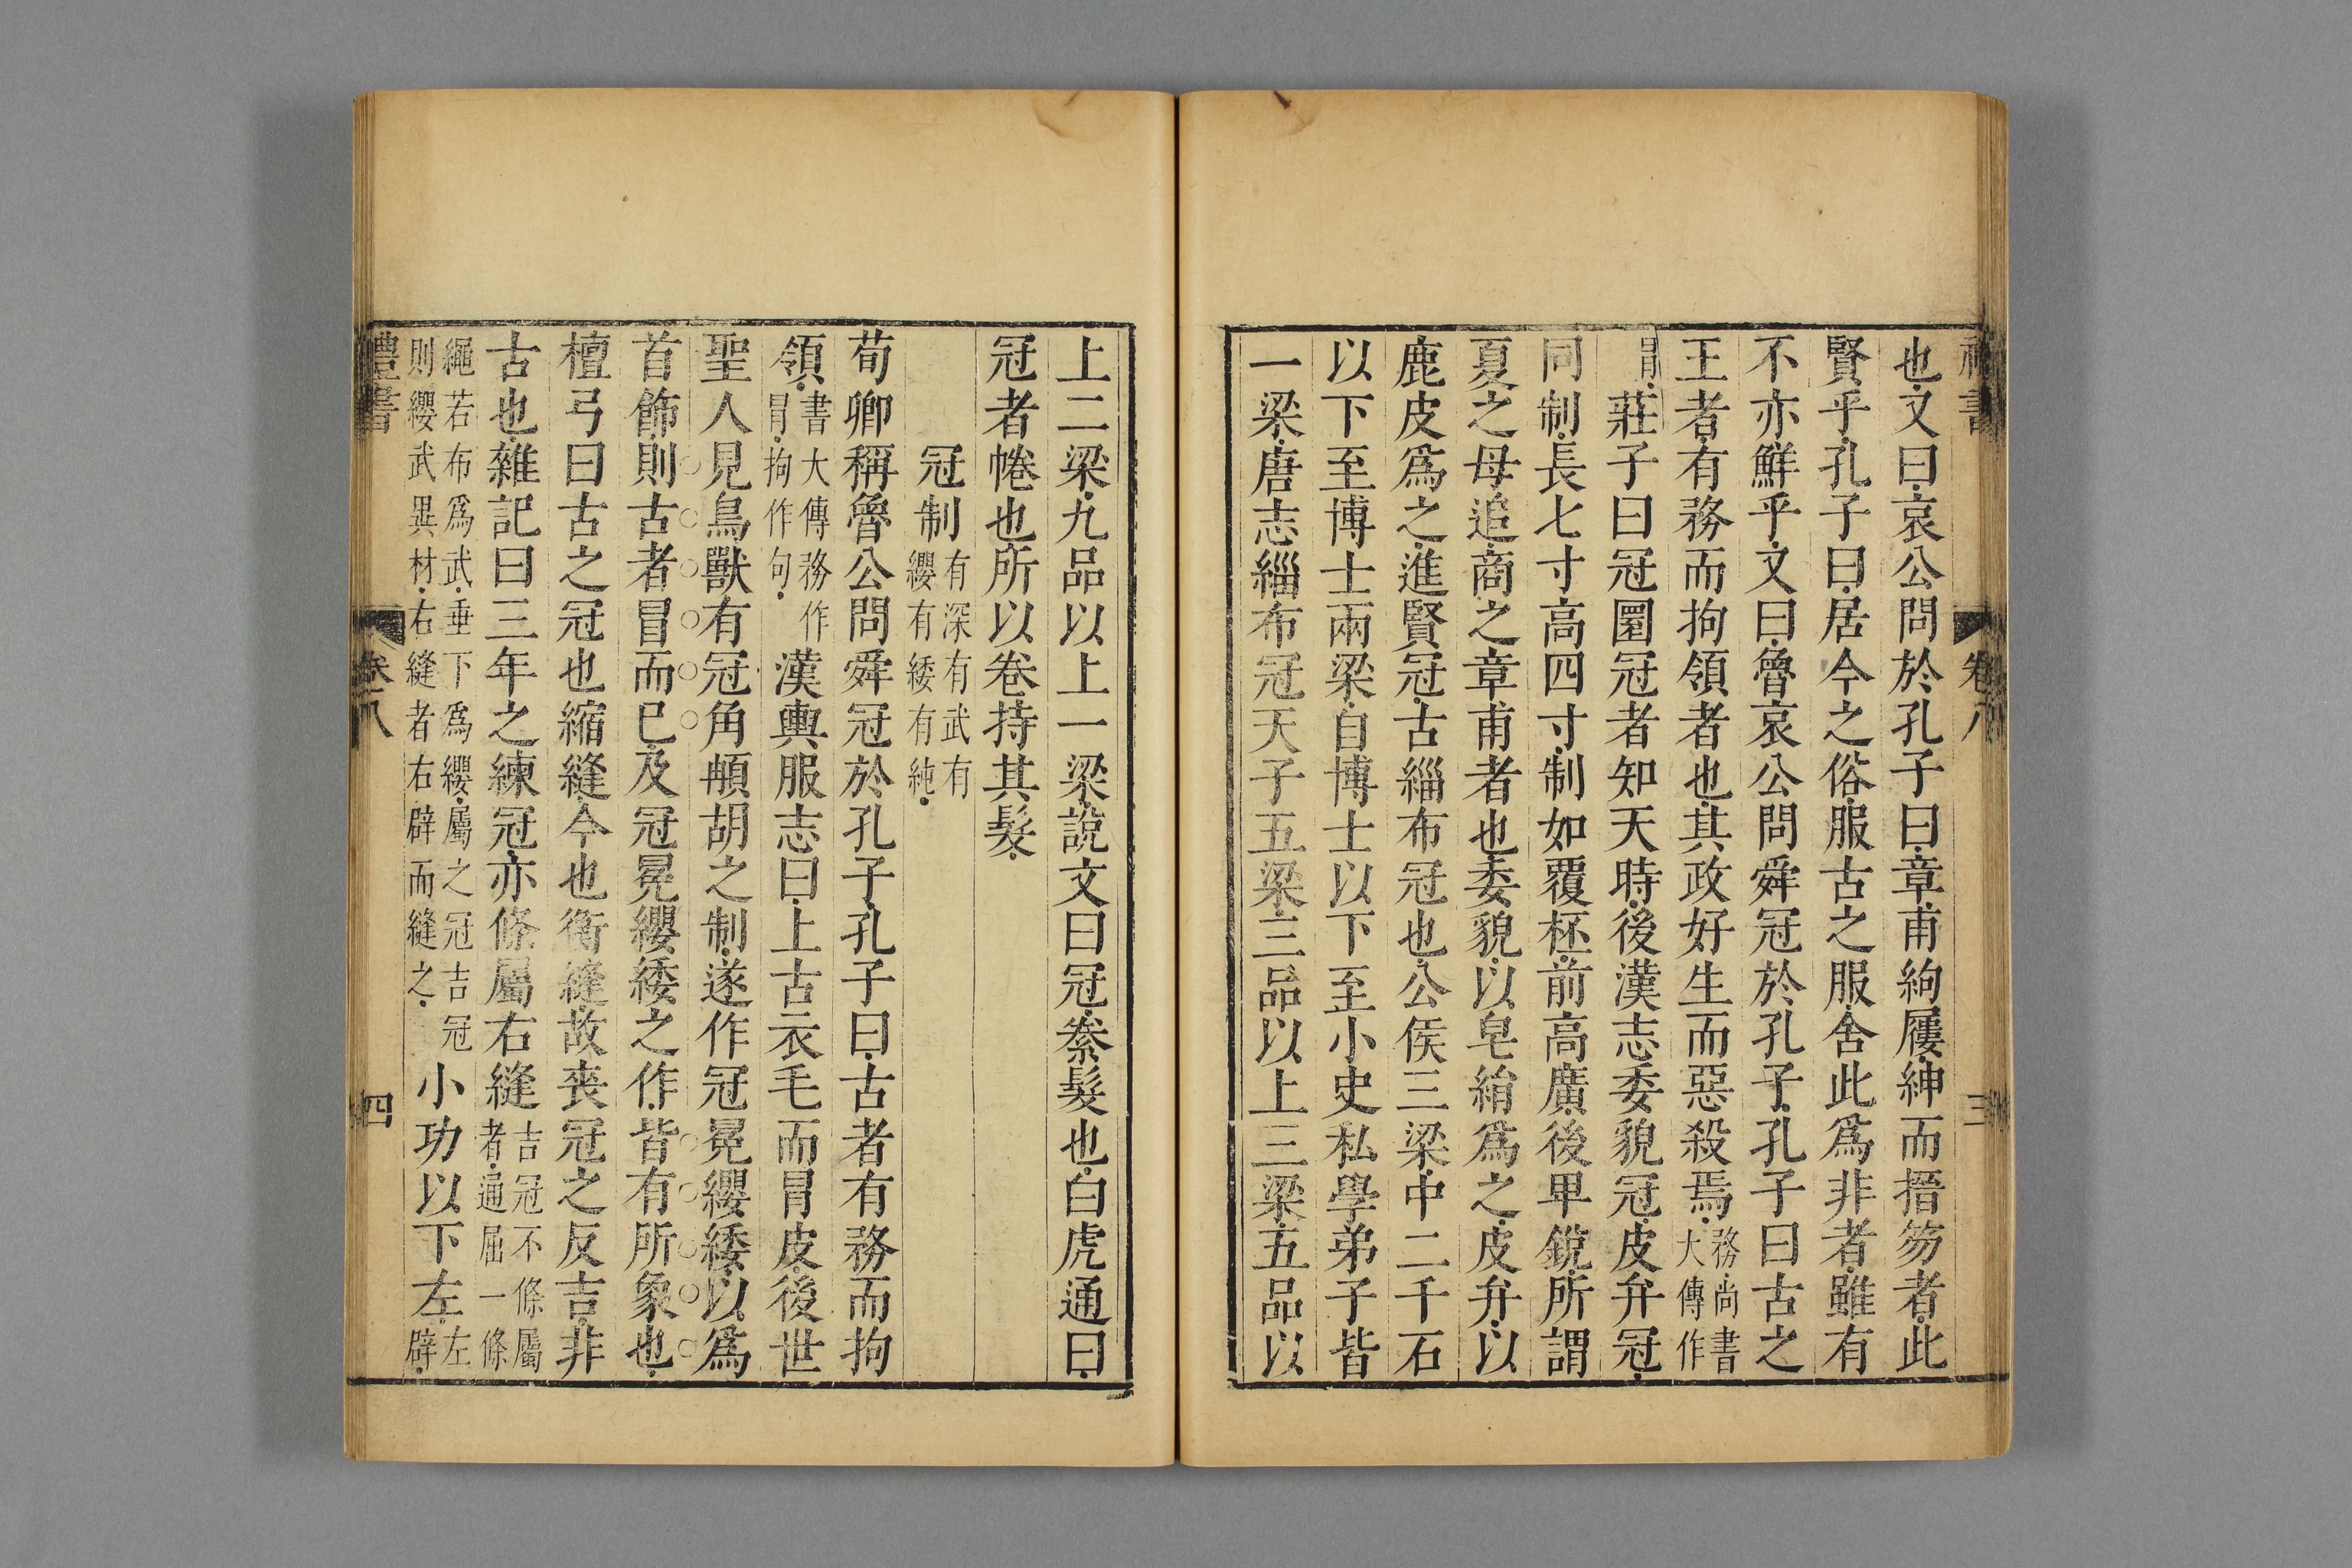 禮書
卷八
三
也又曰哀公問於孔子曰章甫絇屨紳而搢笏者此
賢乎孔子曰居今之俗服古之服舍此爲非者雖有
不亦鮮乎文曰魯哀公問舜冠於孔子孔子曰古之
王者有務而拘領者也其政好生而惡殺焉務尚書大傳作
冒莊子曰冠圜冠者知天時後漢志委貌冠皮弁冠
同制長七寸高四寸制如覆杯前高廣後卑銳所謂
夏之母追商之章甫者也委貌以皂絹爲之皮弁以
鹿皮爲之進賢冠古緇布冠也公侯三梁中二千石
以下至博士兩梁自博士以下至小史私學弟子皆
一梁唐志緇布冠天子五梁三品以上三梁五品以
上二梁九品以上一梁說文曰冠絭髮也白虎通曰
冠者㡓也所以卷持其髮
冠制有深有武有纓有緌有純
荀卿稱魯公問舜冠於孔子孔子曰古者有務而拘
領書大傳務作冒拘作句漢輿服志曰上古衣毛而冒皮後世
聖人見鳥獸有冠角䫇胡之制遂作冠冕纓緌以爲
首飾則古者冒而已及冠冕纓緌之作皆有所象也
檀弓曰古之冠也縮縫今也衡縫故喪冠之反吉非
古也雜記曰三年之練冠亦條屬右縫吉冠不條屬者通屈一條
繩若布爲武垂下爲纓屬之冠吉冠則纓武異材右縫者右辟而縫之小功以下左左辟
禮書
卷八
四